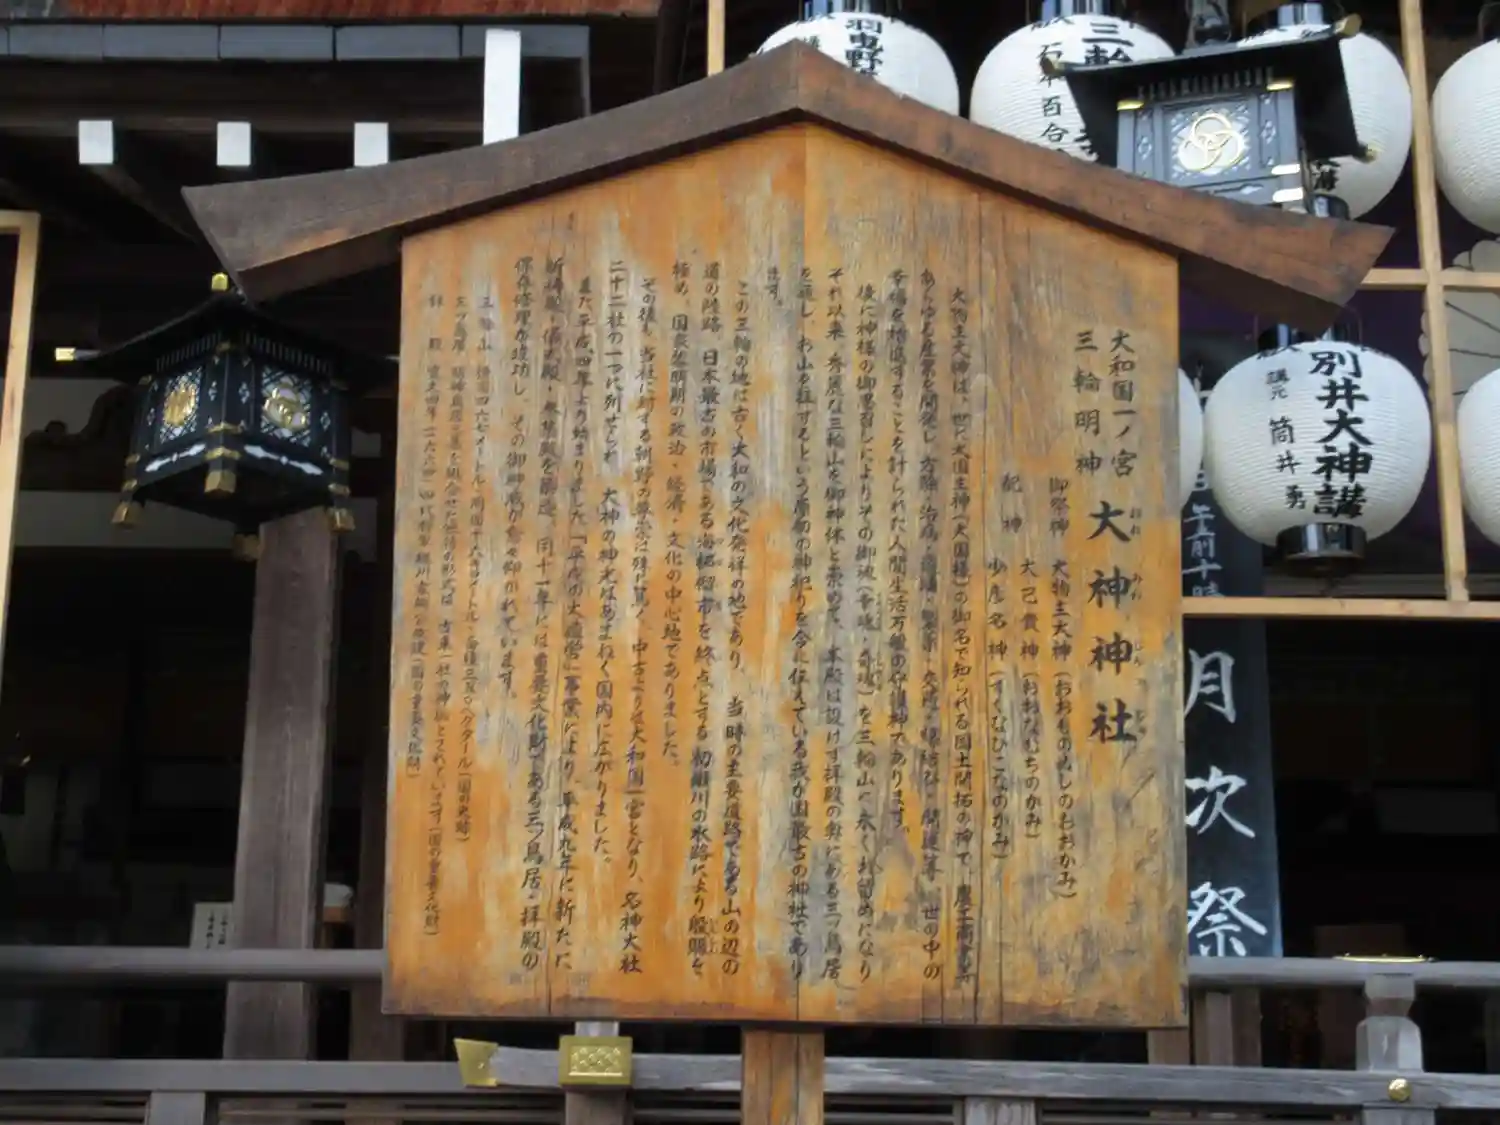 大和国一ノ宮
三輪明神
大神神社
おお みわ じん じゃ
御祭神 大物主大神(おおものぬしのおおかみ)
配神 大己貴神(おおなむちのかみ)
少彦名神(すくなひこなのかみ)
大物主大神は、世に大国主神(大国様)の御名で知られる国土開拓の神で、農工商業等
あらゆる産業を開発し、方除・治病・造酒・製薬・交通・縁結び・開運等 世の中の
幸福を増進することを計られた人間生活万般の守護神であります。
後に神様の御思召しによりその御魂(幸魂・奇魂)を三輪山に永くお留めになり
それ以来、秀麗な三輪山を御神体と崇めて、本殿は設けず拝殿の奥にある三ツ鳥居
を通し、お山を拝するという原初の神祀りを今に伝えている我が国最古の神社であり
ます。
この三輪の地は古く大和の文化発祥の地であり、当時の主要道路である山の辺の
道の陸路、日本最古の市場である海柘榴市を終点とする初瀬川の水路により殷賑を
極め、国家黎明期の政治・経済・文化の中心地でありました。
その後も、当社に対する朝野の尊崇は殊に篤く、中古よりは大和国一宮となり、名神大社
二十二社の一つに列せられ 大神の神光はあまねく国内に広がりました。
また、平成四年より始まりました「平成の大造営」事業により、平成九年に新たに
祈祷殿・儀式殿・参集殿を造営、同十一年には重要文化財である三ツ鳥居・拝殿の
保存修理が竣功し、その御神威が愈々仰がれています。
三輪山 標高四六七メートル・周囲十六キロメートル・面積三五〇ヘクタール(国の史跡)
三ツ鳥居 明神鳥居三基を組合せた独特の形式は 古来一社の神秘とされています(国の重要文化財)
拝殿 寛文四年(一六六四)四代将軍 徳川家綱公 再建(国の重要文化財)
羽曳野
三輪
石本百合
別井大神講
講元 筒井勇
午前十時
月次祭